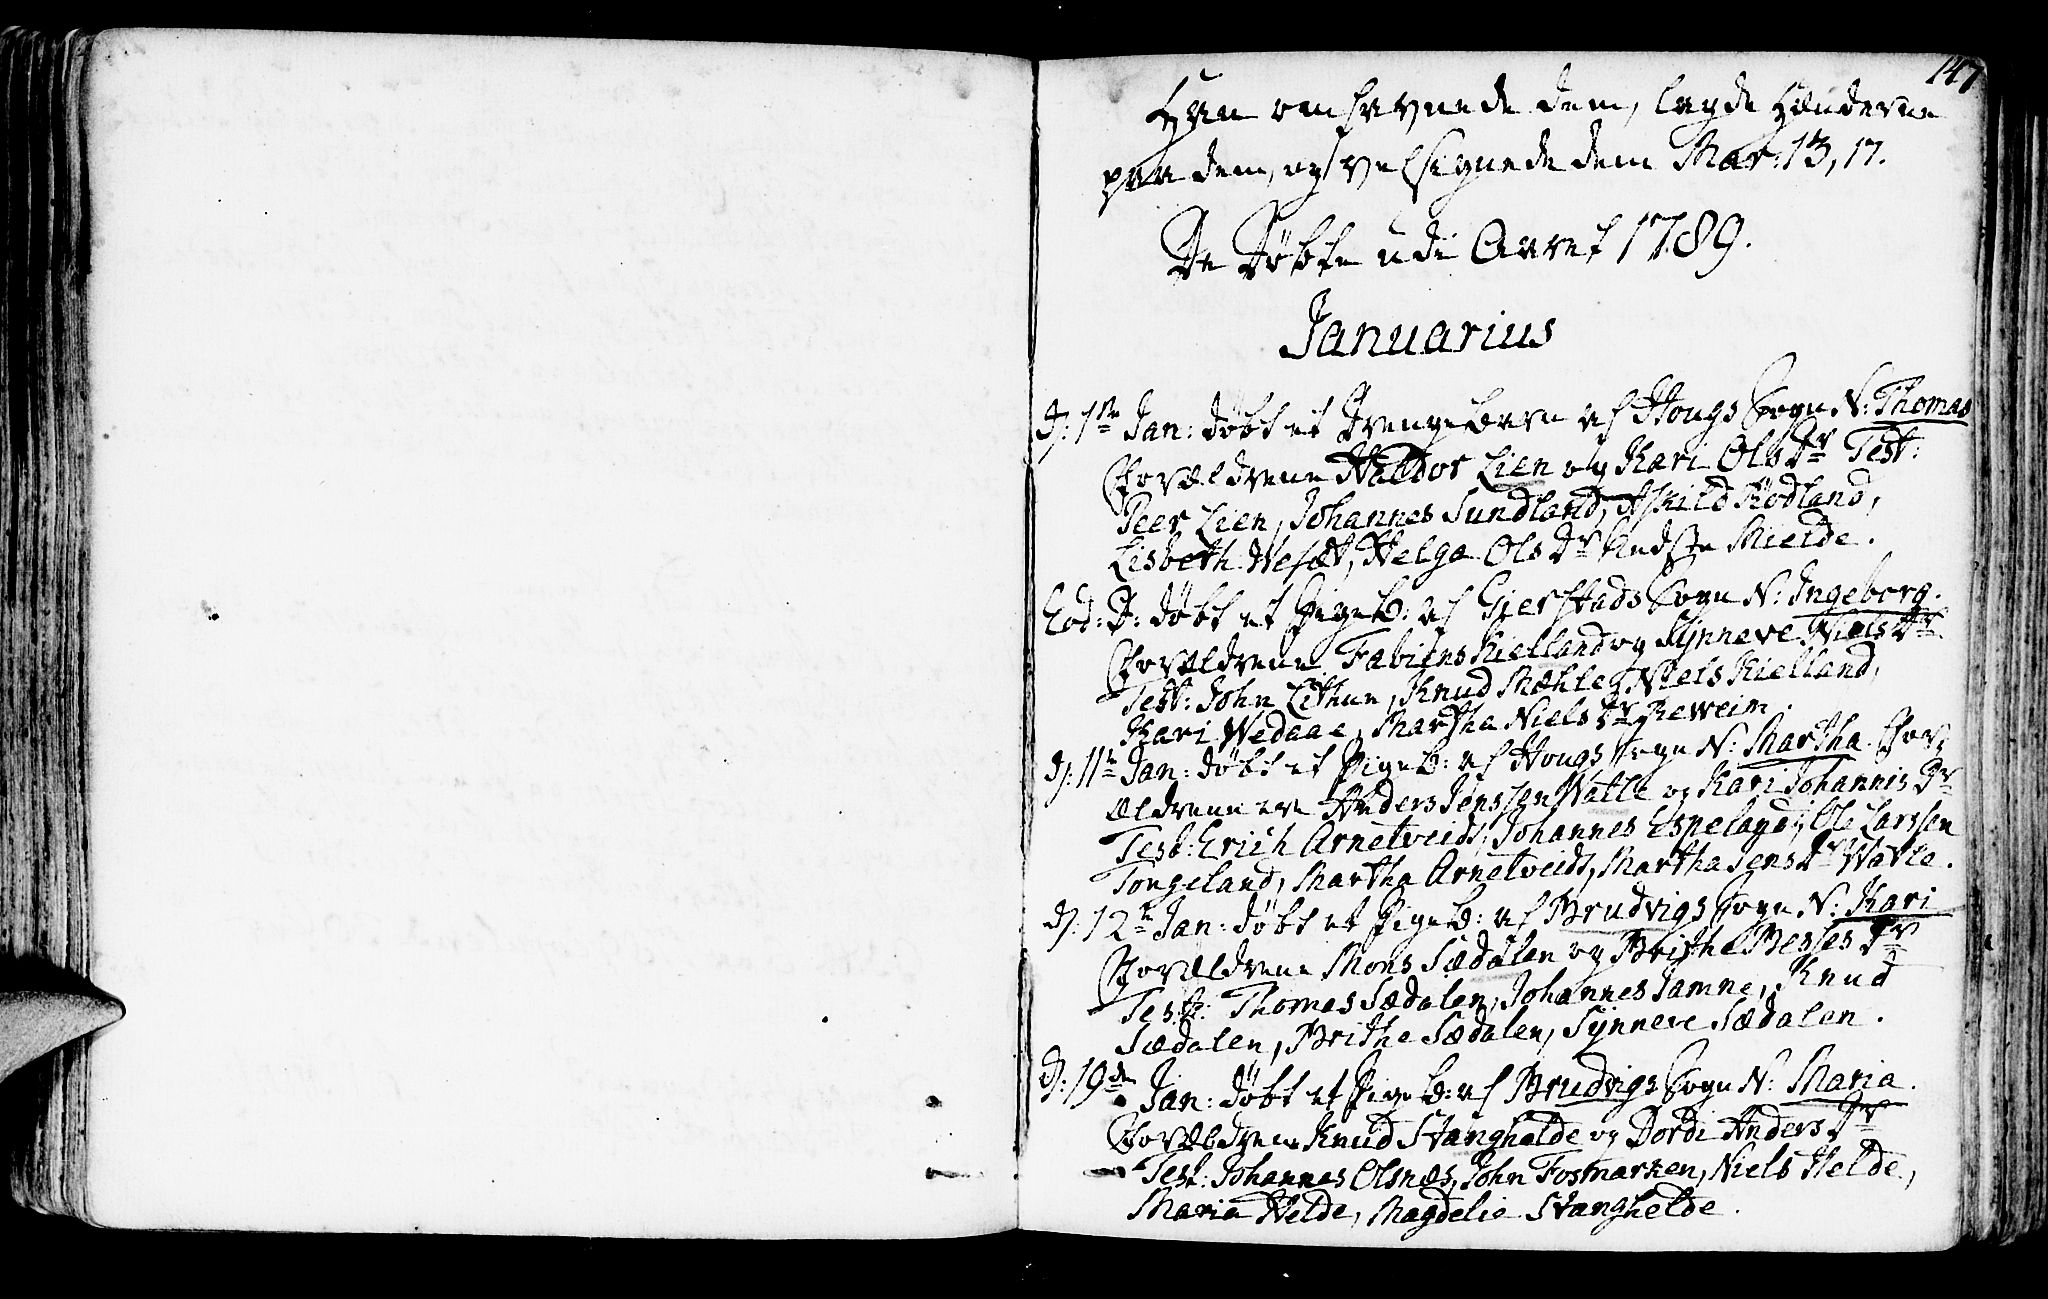 147
Han omfavnede dem, lagde Hænderne
paa dem, og velsignede dem Mar: 13, 17.
De Døbte udi Aaret 1789.
Januarius
D: 1ste Jan: døbt et Drengebarn af Hougs Sogn N: Thomas
Forældrene Haldor Lien og Kari Ols Dr Test:
Peer Lien, Johannes Sundland, Askild Rødland,
Lisbeth Wesæt, Helga Ols Dr Mielde.
Eod: D: døbt et Pigeb: af Gierstads Sogn N: Ingeborg.
Forældrene Fabiens Kielland og Synneve Niels Dr
Test: John Lithun, Knud Mæhle, Niels Kielland,
Kari Wedaae, Martha Niels Dr Reweim.
D: 11te Jan: døbt et Pigeb: af Hougs Sogn N: Martha. For-
ældrene ere Anders Jenssen Watle og Kari Johannis Dr
Test: Erich Arnetveidt, Johannes Espeland, Ole Larssen
Tongeland, Martha Arnetveidt, Martha Jens Dr Watle.
D: 12te Jan: døbt et Pigeb: af Brudvigs Sogn N: Kari
Forældrene Mons Sædalen og Brithe Besses Dr
Test: Thomas Sædalen, Johannes Jamne, Knud
Sædalen, Brithe Sædalen, Synneve Sædalen.
D: 19de Jan: døbt et Pigeb: af Brudvigs Sogn N: Maria.
Forældrene Knud Stanghelde og Dordi Anders Dr
Test: Johannes Olsnæs, John Fosmarken, Niels Helde,
Maria Helde, Magdelie Stanghelde.